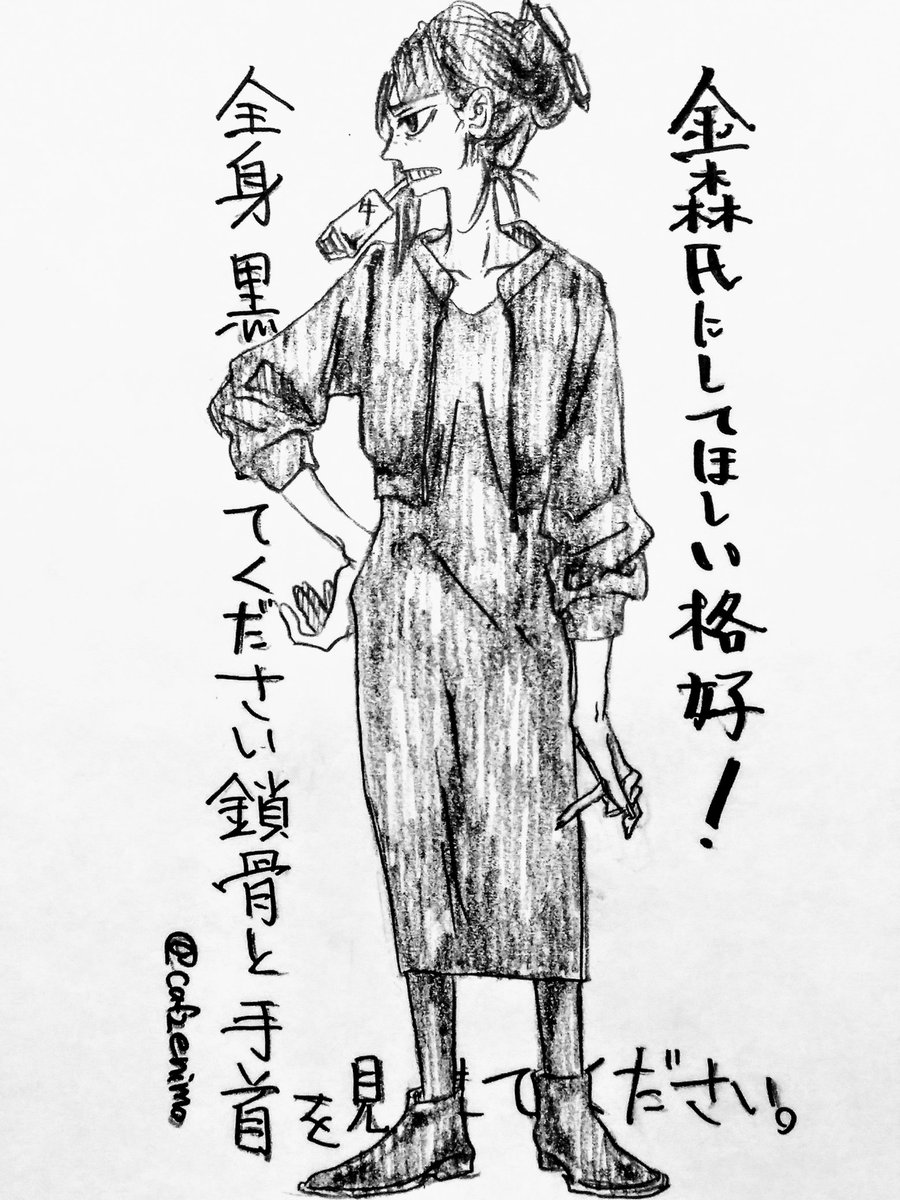 金森氏にしてほしい格好!
全身黒 てください鎖骨と手首
を見せてください。
牛
@cafzenimo